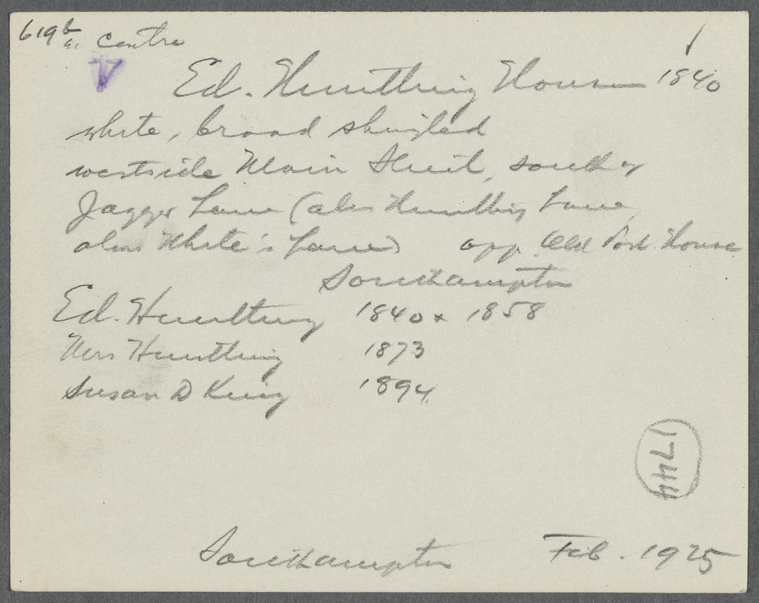 619b centre
Ed. Huntting House 1840
white, broad shingled
westside Main Street, south of
Jagger Lane (also Huntting Lane
also White's Lane) opp. Old Post House
Southampton
Ed. Huntting 1840 & 1858
Mrs Huntting 1873
Susan D King 1894
1744
Southampton Feb. 1925